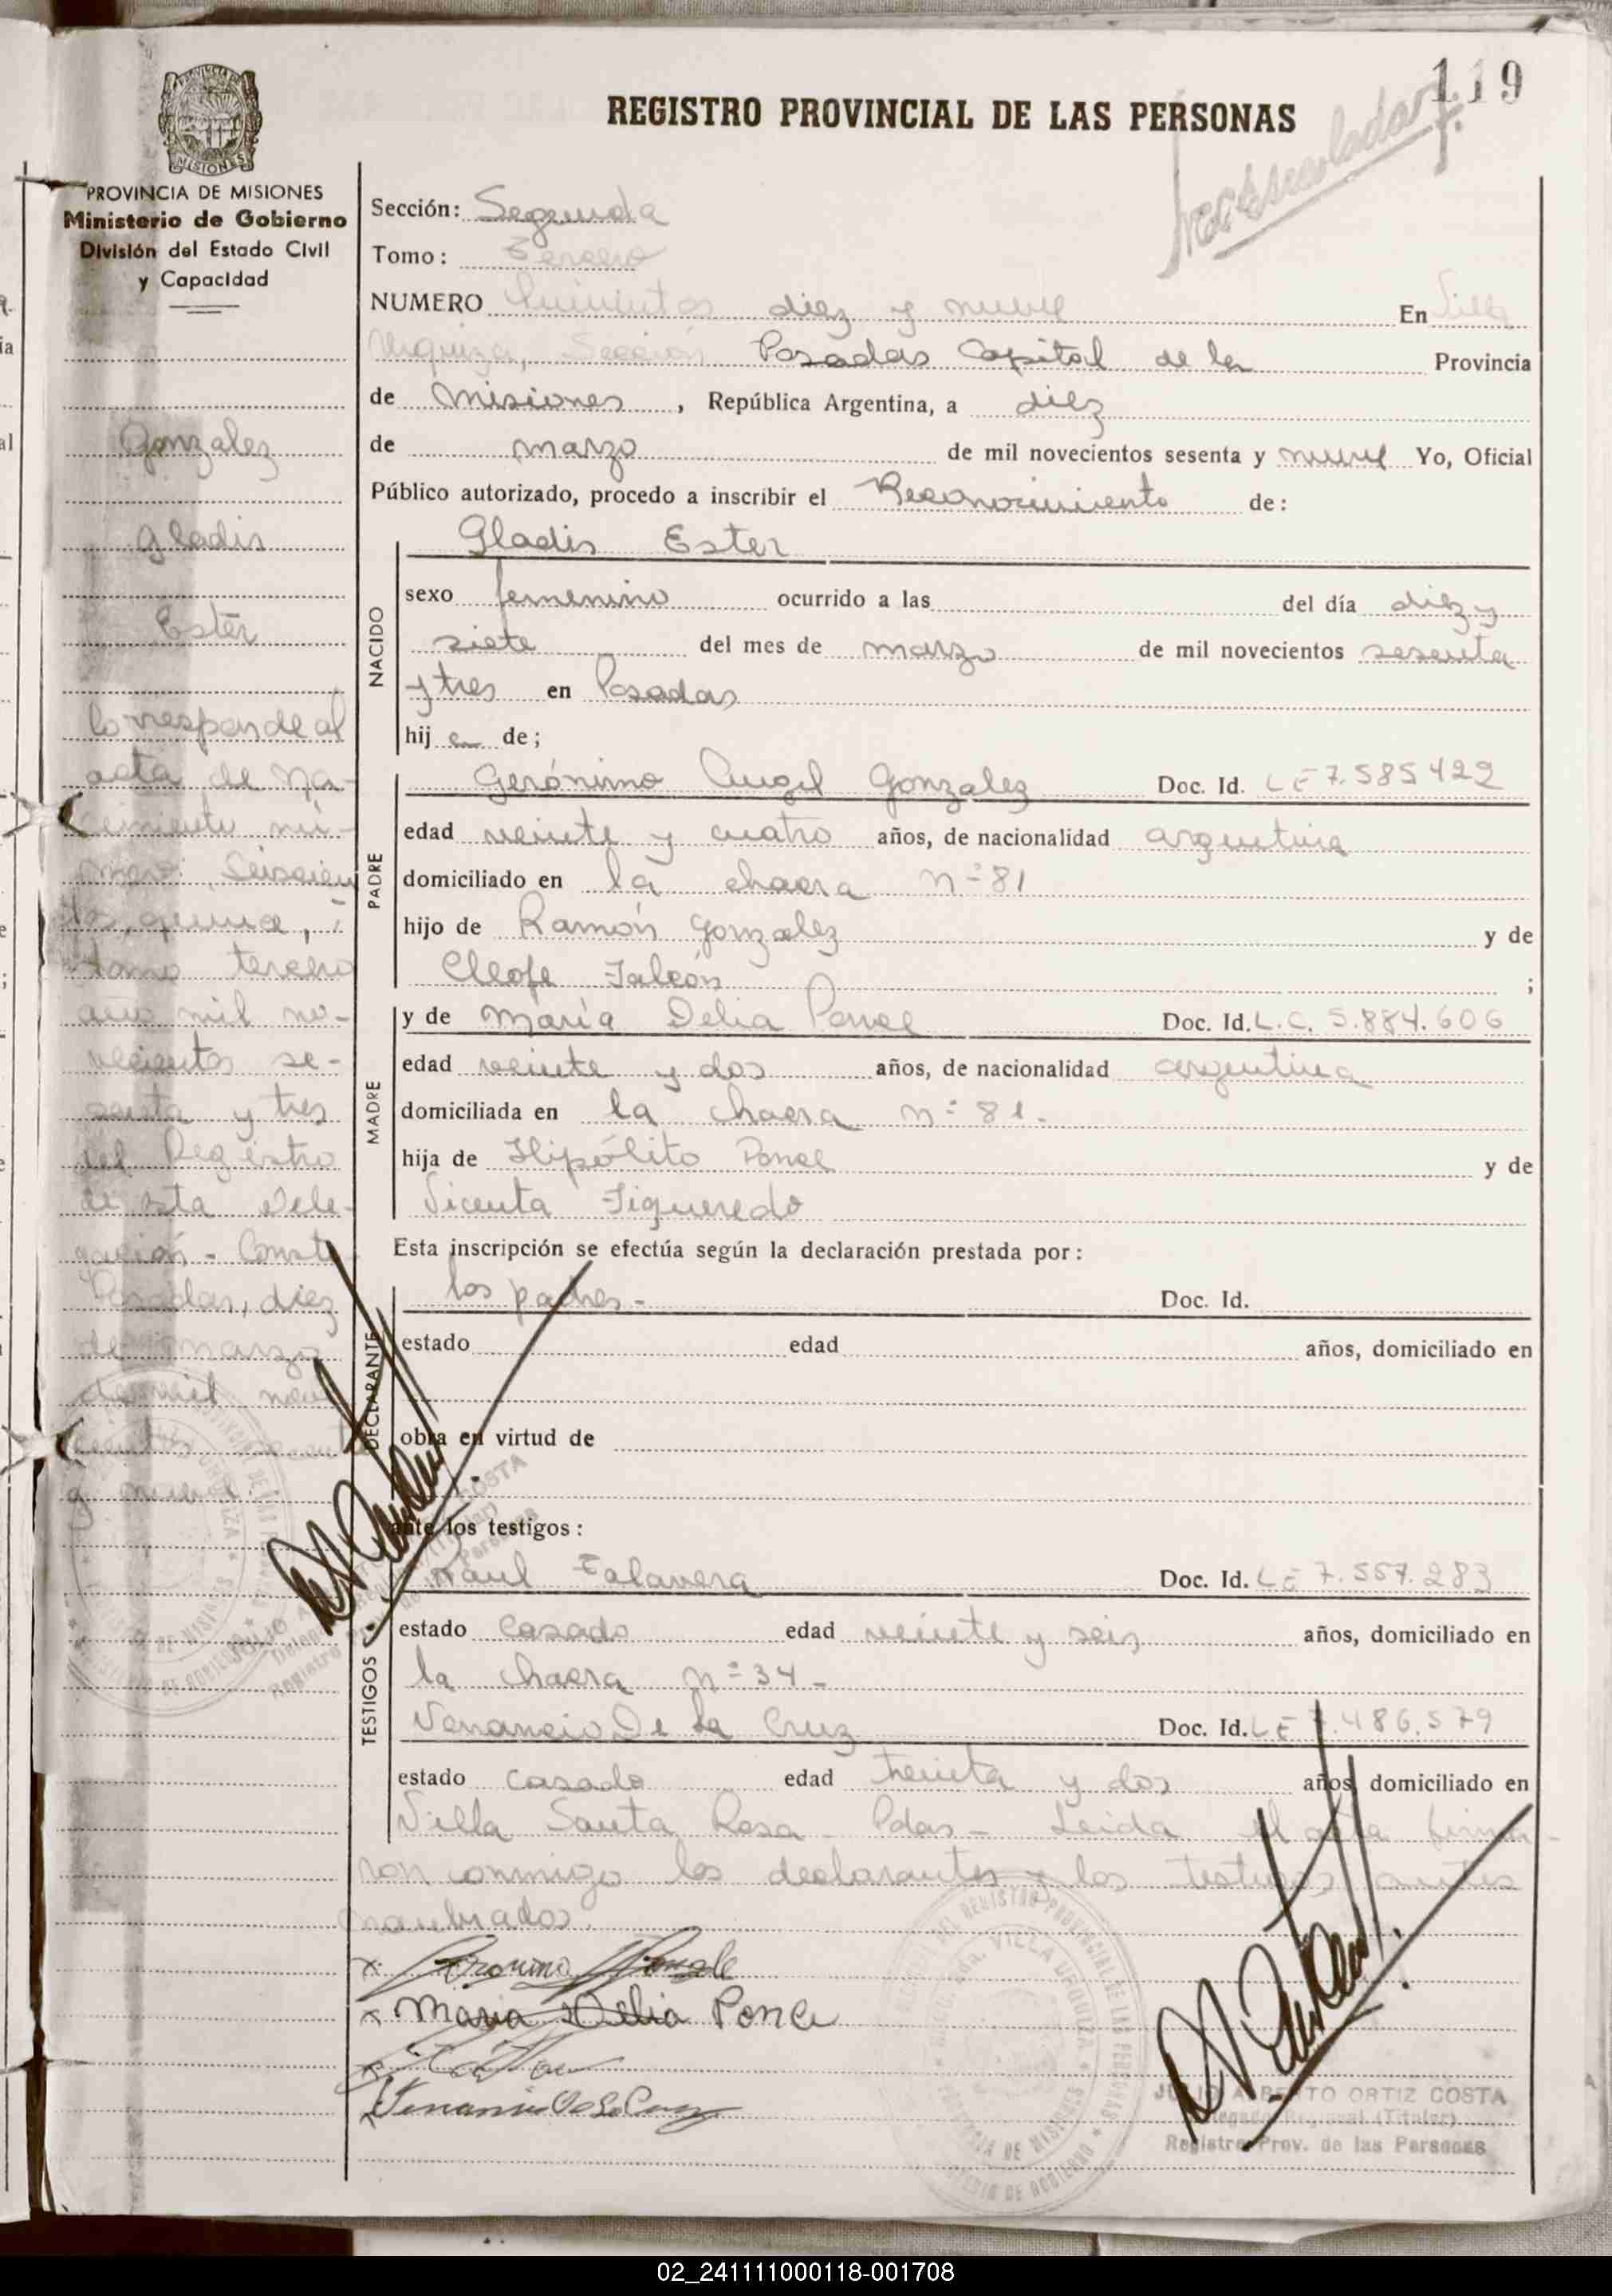 119
REGISTRO PROVINCIAL DE LAS PERSONAS
MISIONES
PROVINCIA DE MISIONES
Ministerio de Gobierno
División del Estado Civil
y Capacidad
Gonzalez
Gladis
Ester
Corresponde al
acta de na-
cimiento nú-
mero: Seiscien
tos quince,
tomo tercero
año mil no-
vecientos se-
senta y tres
del Registro
de esta Dele-
gación - Conste
Posadas, diez
de marzo
de mil nove
y nueve.
Sección: Segunda
Tomo: Tercero
NUMERO Quinientos diez y nueve En Villa
Urquiza, Sección Posadas Capital de la Provincia
de Misiones, República Argentina, a diez
de marzo de mil novecientos sesenta y nueve Yo, Oficial
Público autorizado, procedo a inscribir el Reconocimiento de:
Gladis Ester
NACIDO
sexo femenino ocurrido a las del día diez y
siete del mes de marzo de mil novecientos sesenta
y tres en Posadas
hij a de;
PADRE
Gerónimo Angel Gonzalez Doc. Id. LE 7.585422
edad veinte y cuatro años, de nacionalidad argentina
domiciliado en la chacra nº 81
hijo de Ramón Gonzalez y de
Cleofe Falcón ;
MADRE
y de María Delia Ponce Doc. Id. L.C. 5.884.606
edad veinte y dos años, de nacionalidad argentina
domiciliada en la chacra nº 81.
hija de Hipólito Ponce y de
Vicenta Figueredo
Esta inscripción se efectúa según la declaración prestada por:
DECLARANTE
los padres.- Doc. Id.
estado edad años, domiciliado en
obra en virtud de
ante los testigos:
TESTIGOS
Raul Talavera Doc. Id. LE 7.557.283
estado casado edad veinte y seis años, domiciliado en
la chacra nº 34 -
Venancio De la Cruz Doc. Id. LE 7.486.579
estado casado edad treinta y dos años, domiciliado en
Villa Santa Rosa - Pdas - Leida el acta firma-
ron conmigo los declarantes y los testigos antes
nombrados.
Maria Delia Ponce
Venancio De la Cruz
JULIO ALBERTO ORTIZ COSTA
Delegado Regional (Titular)
Registro Prov. de las Personas
02_241111000118-001708